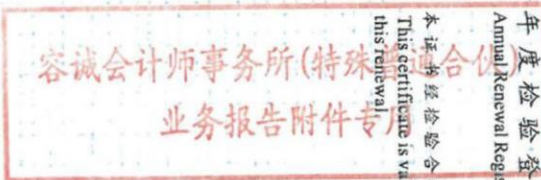 容诚会计师事务所(特殊普通合伙)
业务报告附件专用
年度检验登
Annual Renewal Regis
本证书经检验合
This certificate is va
this renewal.